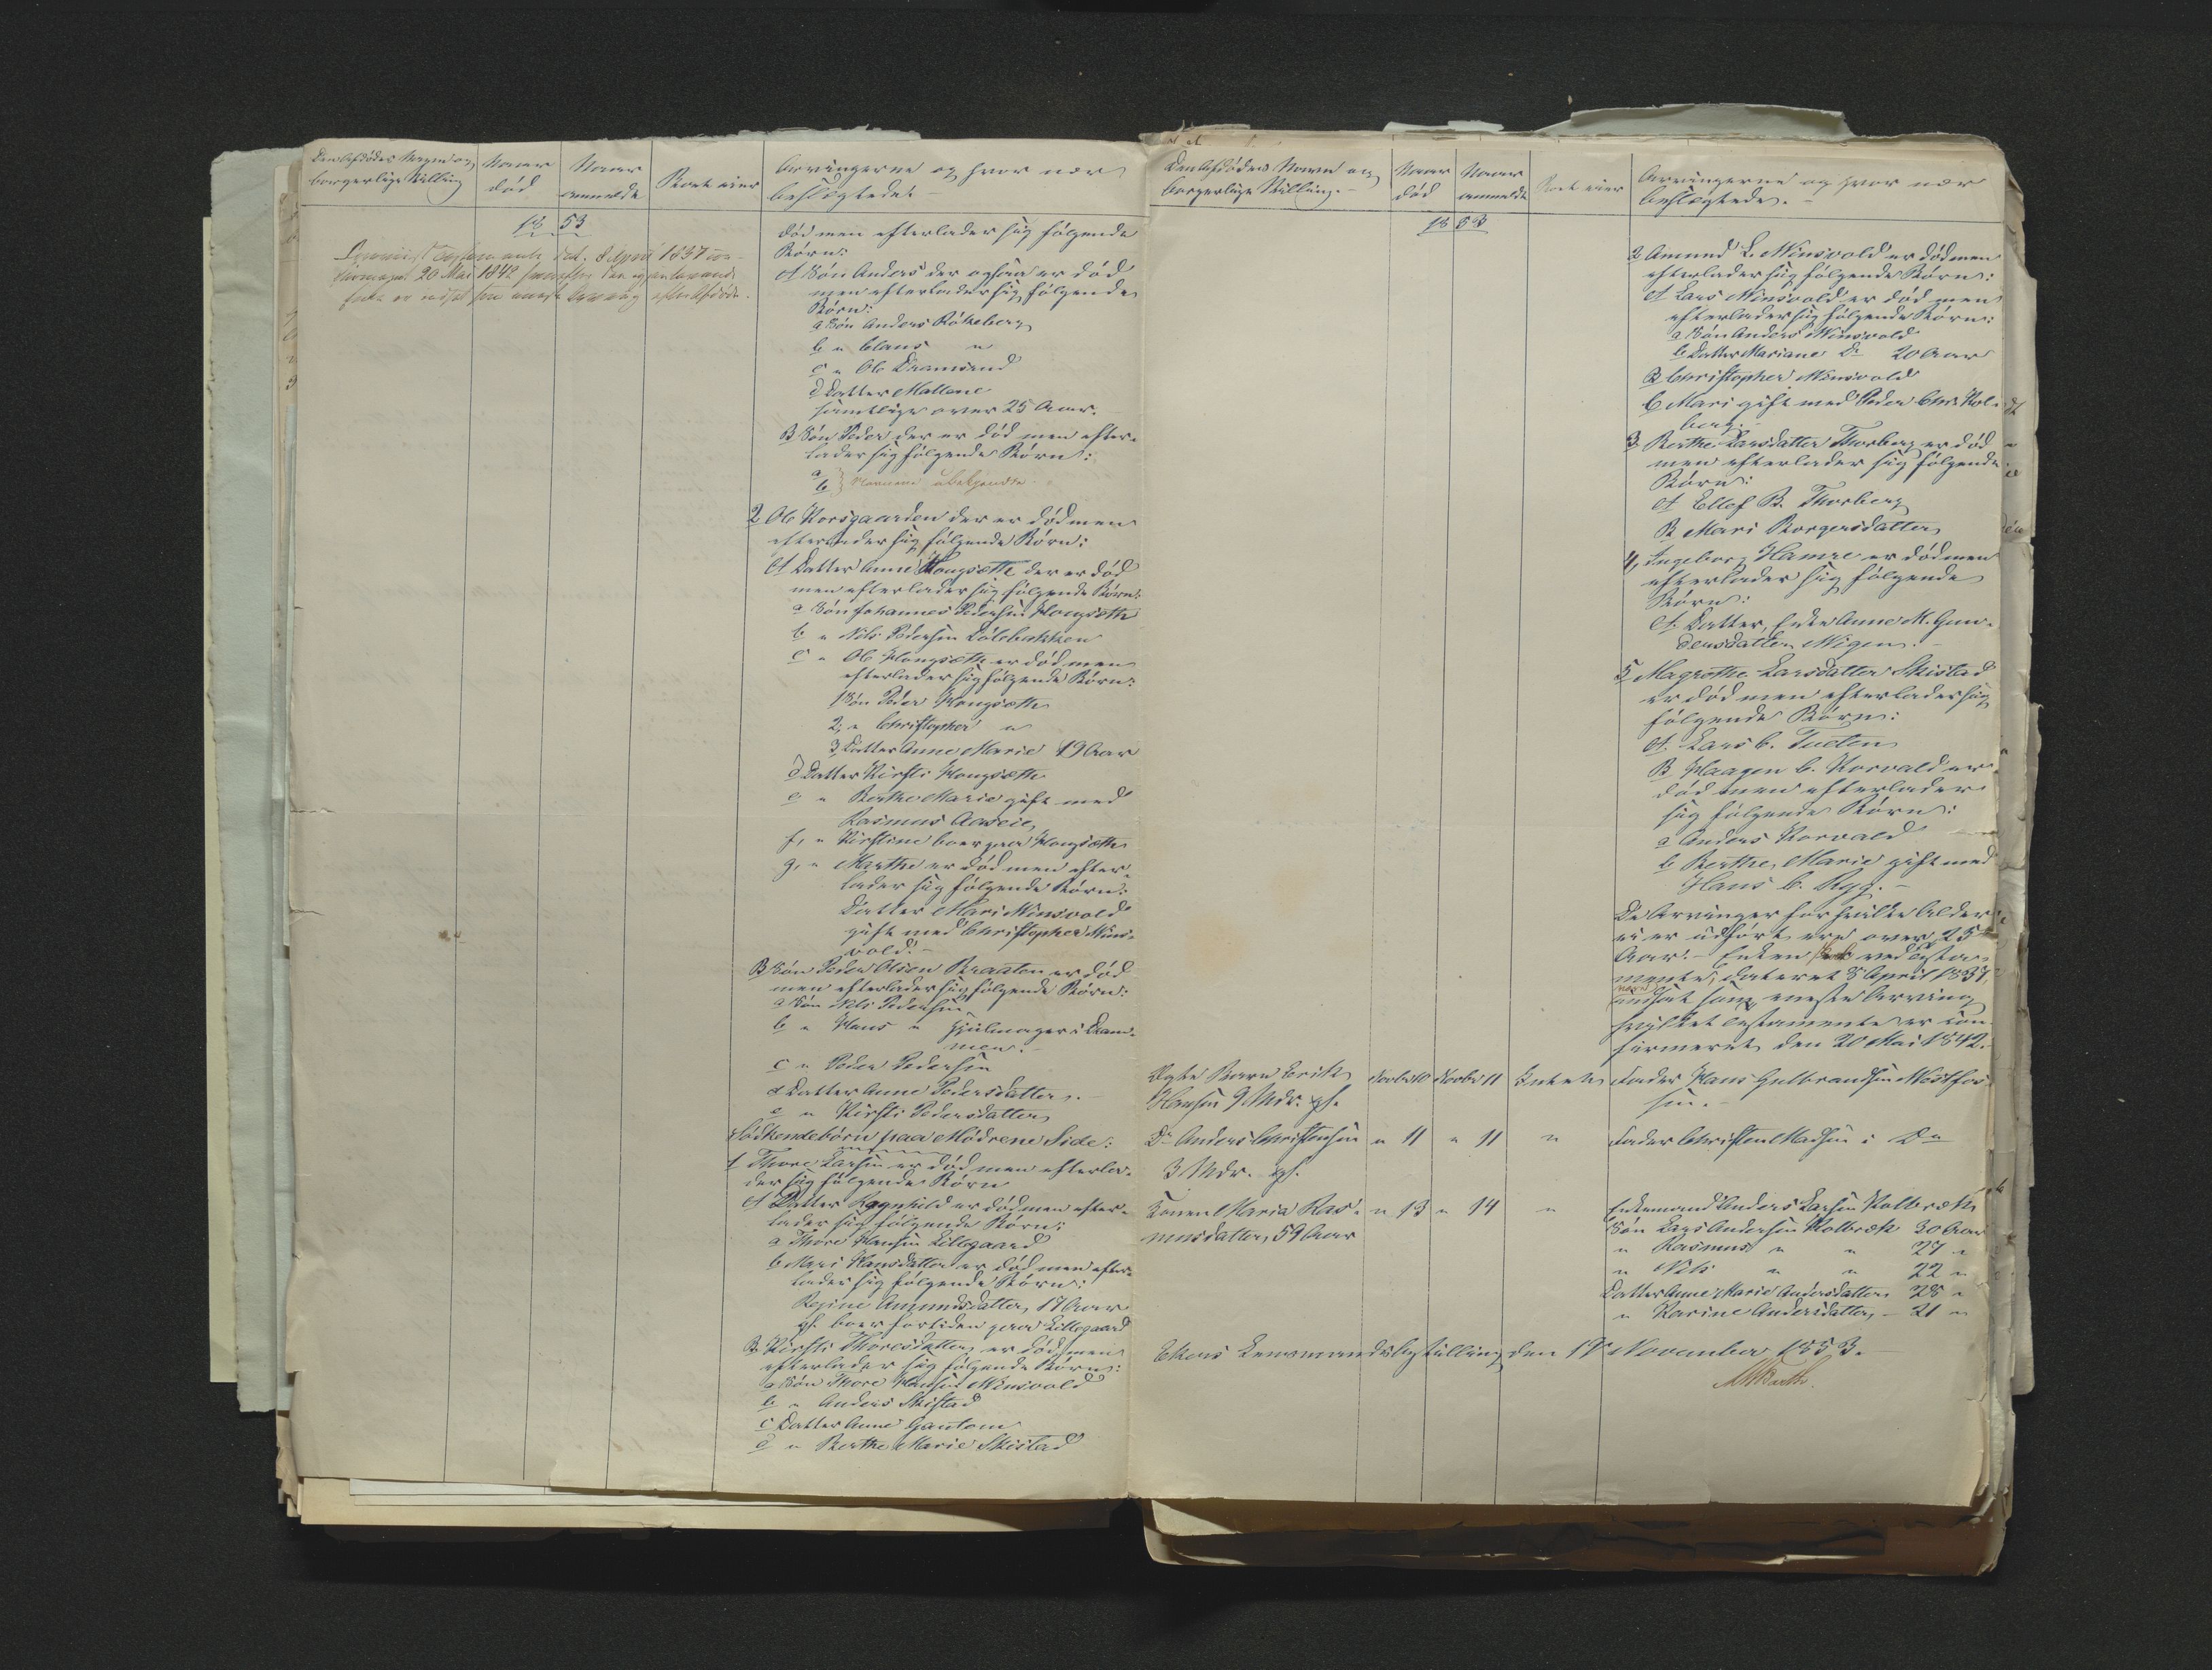 Den Afdödes Navn og
borgerlige Stilling
Naar
död
Naar
anmeldt
Boet eier
Arvingerne og hvor nær
beslægtede
18 53
dat. 8 April 1837
20 Mai 1842
död men efterlader sig følgende
Börn:
A Sön Anders der ogsaa er död
men efterlader sig følgende
Börn:
a Sön Anders Rökeberg
b " Claus "
c " Ole Dramsrud
d Datter Mallene
samtlige over 25 Aar.
B Sön Peder der er död men efter-
lader sig følgende Börn:
a
b } Navnene ubekjendte
2 Ole Korsgaarden der er död men
efterlader sig følgende Börn:
A Datter Anne Hougsæth der er död
men efterlader sig følgende Börn:
a Sön Johannes Pedersen Hougsæth
b " Nils Pedersen Dölebakken
c " Ole Hougsæth er död men
efterlader sig følgende Börn:
1 Sön Peder Hougsæth
2, " Christopher "
3, Datter Anne Marie 19 Aar
d Datter Kirsti Hougsæth
e " Berthe Marie gift med
Rasmus Aaseie
f, " Kirstine boer paa Hougsæth
g, " Marthe er död men efter-
lader sig følgende Börn:
Datter Mari Minsvold
gift med Christopher Mins-
vold.-
B Sön Peder Olsen Braaten er död
men efterlader sig følgende Börn:
a Sön Nils Pedersen
b " Hans " Hjulmager i Dram-
men.-
c " Peder Pedersen
d Datter Anne Pedersdatter.-
e " Kirsti Pedersdatter
Södskendebörn paa Mödrene Side:
1 Thore Larsen er död men efterla-
der sig følgende Börn
A Datter Ragnhild er död men efter-
lader sig følgende Börn:
a Thore Hansen Lillegaard
b Mari Hansdatter er död men efter-
lader sig følgende Börn:
Regine Amundsdatter, 17 Aar
gl. boer fortiden paa Lillegaard
B Kirsti Thoresdatter er död men
efterlader sig følgende Börn:
a Sön Thore Hansen Minsvold
b " Anders Skistad
c Datter Anne Gunton
d " Berthe Marie Skistad
Den Afdödes Navn og
borgerlige Stilling.-
Naar
död
Naar
anmeldt
Boet eier
Arvingerne og hvor nær
beslægtede.-
18 53
2 Amund L. Minsvold er död men
efterlader sig følgende Börn:
A Lars Minsvold er död men
efterlader sig følgende Börn:
a Sön Anders Minsvold
b Datter Mariane Do 20 Aar
B Christopher Minsvold
C Mari gift med Peder Chr. Kol-
berg.-
3. Berthe Larsdatter Thorberg er död
men efterlader sig følgende
Börn:
A Ellef B. Thorberg
B Mari Borgersdatter
4, Ingeborg Hamre er död men
efterlader sig følgende
Börn:
A. Datter, Enke Anne M. Gun-
dersdatter Wigen.-
5 Magrethe Larsdatter Skistad
er död men efterlader sig
følgende Börn:
A. Lars C. Tueten
B Haagen C. Korvald er
död men efterlader
sig følgende Börn:
a Anders Korvald
b Berthe Marie gift med
Hans C. Ryg.-
De Arvinger for hvilke Alder
ei er udført ere over 25
Aar.- Enken er ved Testa-
mente, dateret 8 April 1837,
indsat som eneste Arving
hvilket Testamente er con-
firmeret den 20 Mai 1842.-
Ægte Barn Erik
Hansen 9 Mdr. gl.
Novbr 10 Novbr 11 Intet
Fader Hans Gulbrandsen Westfos-
sen.-
Do Anders Christensen
3 Mdr. gl.
" 11 " 11 "
Fader Christen Madsen i Do
Konen Maria Ras-
musdatter, 59 Aar
" 13 " 14 "
Enkemand Anders Larsen Kolbræk
Sön Lars Andersen Kolbræk 30 Aar
" Rasmus " " 27 "
" Nils " " 22 "
Datter Anne Marie Andersdatter 28 "
" Karine Andersdatter, - 21 "
Ekers Lensmandsbestilling den 17 November 1853.